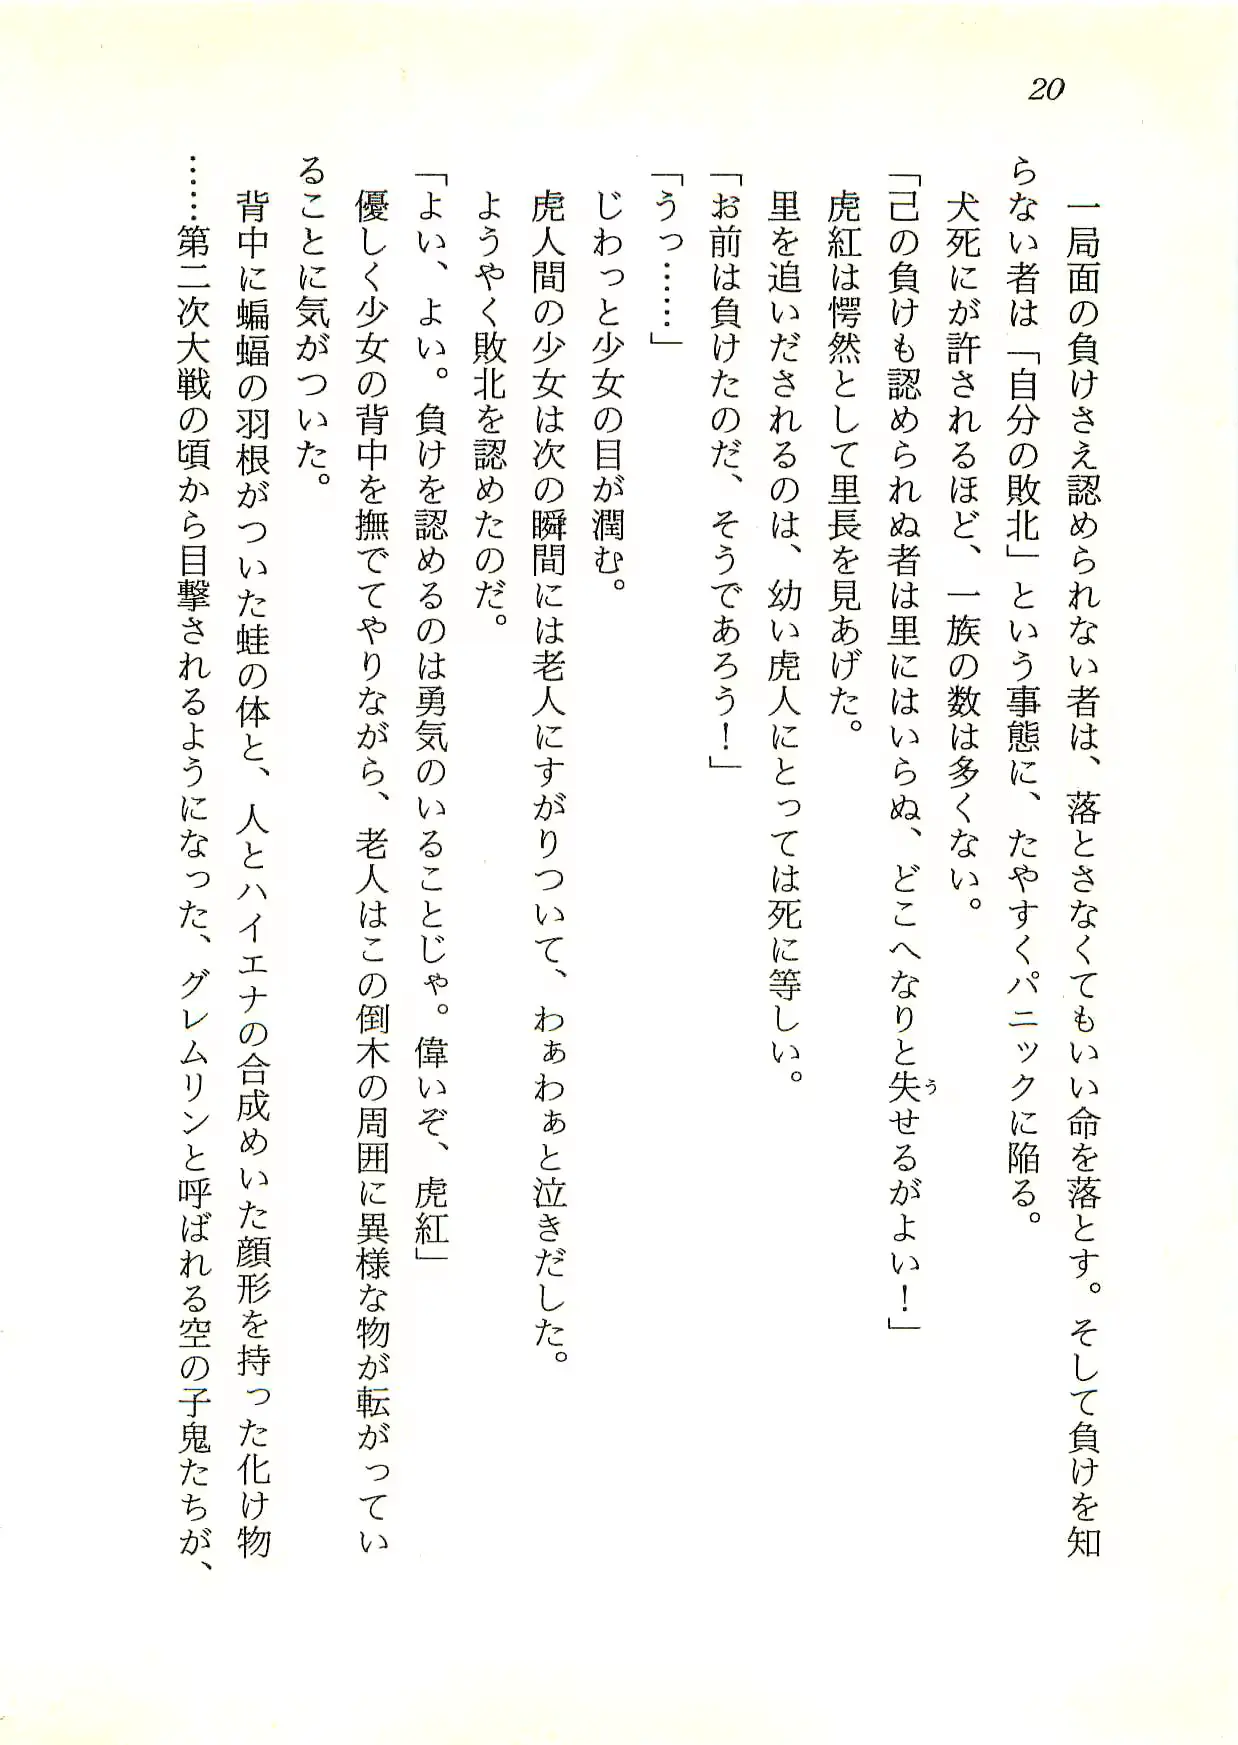 20
一局面の負けさえ認められない者は、落とさなくてもいい命を落とす。そして負けを知
らない者は「自分の敗北」という事態に、たやすくパニックに陥る。
犬死にが許されるほど、一族の数は多くない。
「己の負けも認められぬ者は里にはいらぬ、どこへなりと失せるがよい！」
う
虎紅は愕然として里長を見あげた。
里を追いだされるのは、幼い虎人にとっては死に等しい。
「お前は負けたのだ、そうであろう！」
「うっ……」
じわっと少女の目が潤む。
虎人間の少女は次の瞬間には老人にすがりついて、わぁわぁと泣きだした。
ようやく敗北を認めたのだ。
「よい、よい。負けを認めるのは勇気のいることじゃ。偉いぞ、虎紅」
優しく少女の背中を撫でてやりながら、老人はこの倒木の周囲に異様な物が転がってい
ることに気がついた。
背中に蝙蝠の羽根がついた蛙の体と、人とハイエナの合成めいた顔形を持った化け物
……第二次大戦の頃から目撃されるようになった、グレムリンと呼ばれる空の子鬼たちが、